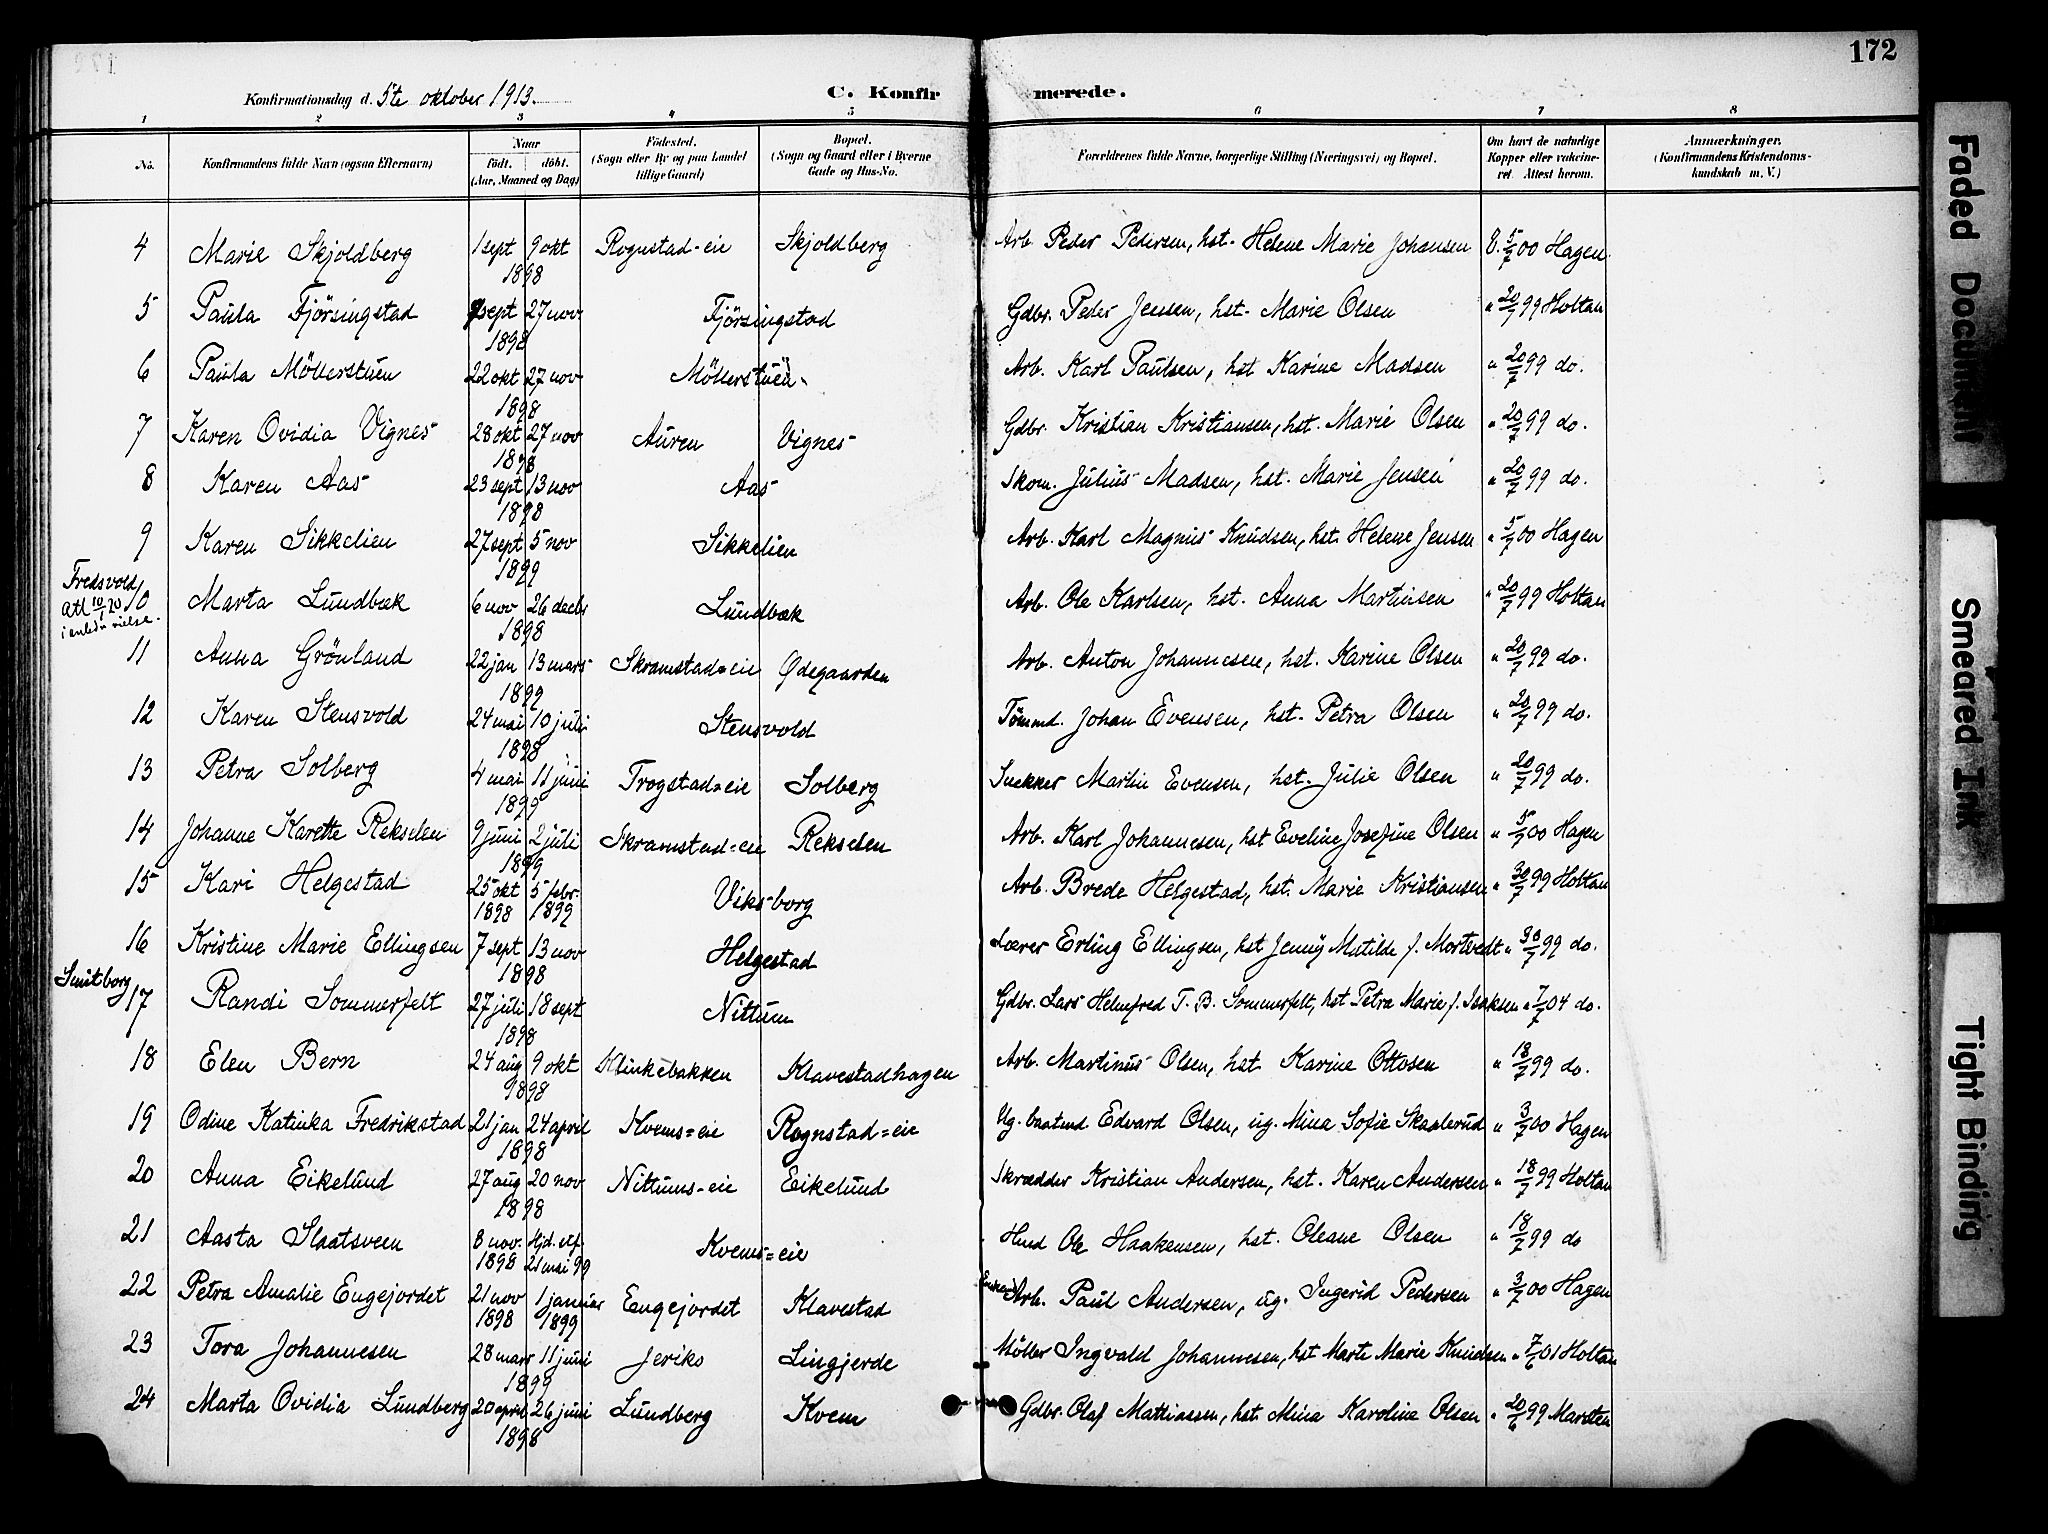 172
Konfirmationsdag d. 5te oktober 1913.
C. Konfirmerede.
1 2 3 4 5 6 7 8
No. Konfirmandens fulde Navn (ogsaa Efternavn) Naar født. døbt. (Aar, Maaned og Dag) Fødested. (Sogn eller By og paa Landet tillige Gaard) Bopæl. (Sogn og Gaard eller i Byerne Gade og Hus-No. Forældrenes fulde Navne, borgerlige Stilling (Næringsvei) og Bopæl. Om havt de naturlige Kopper eller vakcineret. Attest herom. Anmærkninger. (Konfirmandens Kristendomskundskab m. V.)
4 Marie Skjoldberg 1 sept 9 okt 1898 Rognstad-eie Skjoldberg Arb. Peder Pedersen, hst. Helene Marie Johansen 8. 5/7 00 Hagen.
5 Paula Fjörsingstad sept 27 nov 1898 Fjörsingstad Gdbr. Peder Jensen, hst. Marie Olsen " 20/7 99 Holtan
6 Paula Möllerstuen 22 okt 27 nov 1898 Möllerstuen Arb. Karl Paulsen, hst Karine Madsen " 20/7 99 do.
7 Karen Ovidia Vignes 28 okt 27 nov 1898 Auren Vignes Gdbr. Kristian Kristiansen, hst. Marie Olsen " 20/7 99 do.
8 Karen Aas 23 sept 13 nov 1898 Aas Skom. Julius Madsen, hst. Marie Jensen " 20/7 99 do.
9 Karen Sikkelien 27 sept 5 nov 1899 Sikkelien Arb. Karl Magnus Knudsen, hst. Helene Jensen " 5/7 00 Hagen
Fredsvold
Att 10/1 20
10 Marta Lundbæk 6 nov 26 decbr 1898 Lundbæk Arb. Ole Karlsen, hst. Anna Martinsen " 20/7 99 Holtan
11 Anna Grönland 22 jan 13 mars 1899 Skramstad-eie Ødegaarden Arb. Anton Johannesen, hst. Karine Olsen " 20/7 99 do.
12 Karen Stensvold 24 mai 10 juli 1898 Stensvold Tømmd. Johan Evensen, hst. Petra Olsen " 20/7 99 do.
13 Petra Solberg 4 mai 11 juni 1899 Trogstad-eie Solberg Snekker Martin Evensen, hst. Julie Olsen " 20/7 99 do.
14 Johanne Karette Rekselen 9 juni 2 juli 1899 Skramstad-eie Rekselen Arb. Karl Johannesen, hst Eveline Josefine Olsen " 5/7 00 Hagen
15 Kari Helgestad 25 okt 1898 5 febr. 1899 Viksborg Arb. Brede Helgestad, hst. Marie Kristiansen " 30/7 99 Holtan
16 Kristine Marie Ellingsen 7 sept 13 nov 1898 Helgestad Lærer Erling Ellingsen, hst Jenny Matilde f. Mortvedt " 30/7 99 do.
Smitborg
17 Randi Sommerfelt 27 juli 18 sept 1898 Nittum Gdbr. Lars Helmfred T. B. Sommerfelt, hst Petra Marie f. Isaksen " 7/7 04 do.
18 Elen Bern 24 aug 9 okt 1898 Klinkebakken Klavestadhagen Arb. Martinus Olsen, hst. Karine Ottosen " 18/7 99 do.
19 Odine Katinka Fredrikstad 21 jan 24 april 1898 Kvems-eie Rognstad-eie Ug. baatmd Edvard Olsen, ug. Mina Sofie Skaalerud " 3/7 00 Hagen
20 Anna Eikelund 27 aug 20 nov 1898 Nittums-eie Eikelund Skrædder Kristian Andersen, hst. Karen Andersen " 18/7 99 Holtan
21 Aasta Slaatsveen 8 nov. 1898 Hjd. stf. 21 mai 99 Kvems-eie Hmd Ole Haakensen, hst. Oleane Olsen " 18/7 99 do
22 Petra Amalie Engejordet 21 nov 1898 1 januar 1899 Engejordet Klavestad Arb. Paul Andersen, ug. Ingerid Pedersen " 3/7 00 Hagen
23 Tora Johannesen 28 mars 11 juni 1899 Jeriko Lingjerde Møller Ingvald Johannesen, hst Marte Marie Knudsen " 7/6 01 Holtan
24 Marta Ovidia Lundberg 20 april 26 juni 1898 Lundberg Kvem Gdbr. Olaf Mathiassen, hst. Mina Karoline Olsen " 20/6 99 Marsten
Faded Document
Smeared Ink
Tight Binding